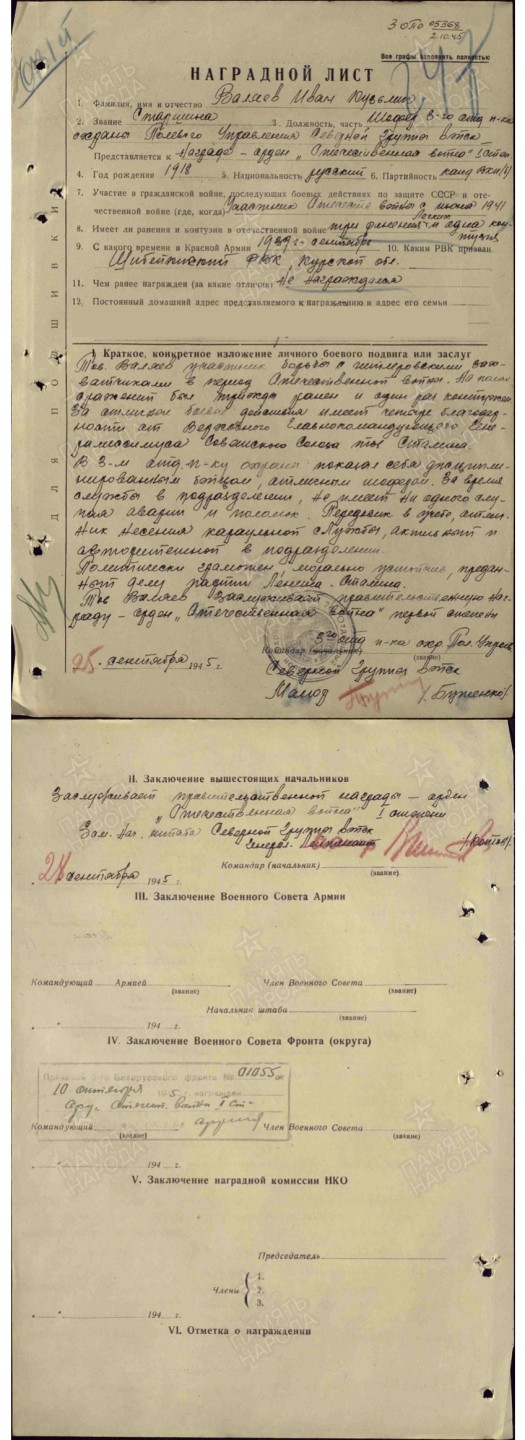 3 ОПо 05368
2.10.45
Все графы заполнять полностью
НАГРАДНОЙ ЛИСТ
1. Фамилия, имя и отчество Валаев Иван Кузьмич
2. Звание Старшина 3. Должность, часть Шофер 3-го отд. п-ка
охраны Полевого Управления Северной Группы Войск
Представляется к Награде - орден „Отечественная война" I степ.
4. Год рождения 1918 5. Национальность русский 6. Партийность канд. ВКП(б)
7. Участие в гражданской войне, последующих боевых действиях по защите СССР и оте-
чественной войне (где, когда) Участник Отечеств войны с июня 1941
8. Имеет ли ранения и контузии в отечественной войне три ранения легких и одна кон-
тузия
9. С какого времени в Красной Армии 1939 г. сентябрь 10. Каким РВК призван
РВК Курской обл.
11. Чем ранее награжден (за какие отличия) Не награждался
12. Постоянный домашний адрес представляемого к награждению и адрес его семьи
ДЛЯ ПОДШИВКИ
I. Краткое, конкретное изложение личного боевого подвига или заслуг
Тов. Валаев участник борьбы с гитлеровскими зах-
ватчиками в период Отечественной войны. На полях
сражений был трижды ранен и один раз контужен.
За отличные боевые действия имеет четыре благодар-
ности от Верховного Главнокомандующего Гене-
ралиссимуса Советского Союза тов. Сталина.
В 3-м отд. п-ку охраны показал себя дисципли-
нированным бойцом, отличным шофером. За время
службы в подразделении, не имеет ни одного слу-
чая аварии и поломок. Передовик в учебе, отлич-
ник несения караульной службы, активный и
авторитетный в подразделении.
Политически грамотен, морально устойчив, предан-
ный делу партии Ленина - Сталина.
Тов. Валаев заслуживает правительственную наг-
раду - орден „Отечественная война" первой степени
Командир (начальник) 3го отд п-ка охр Пол. Управ
(звание)
25 „ сентября 1945 г. Северной Группы Войск
Майор /Буженко/
II. Заключение вышестоящих начальников
Заслуживает правительственной награды - орден
„Отечественная война" I степени
Зам. Нач. штаба Северной Группы Войск
Генерал-
Командир (начальник)
(звание)
28 сентября 1945 г.
III. Заключение Военного Совета Армии
Командующий Армией Член Военного Совета
(звание) (звание)
Начальник штаба
(звание)
„ " 194 г.
IV. Заключение Военного Совета Фронта (округа)
Приказом 2-го Белорусского фронта № 01055
10 октября 1945 г. награжден
орд. Отечеств. войны I ст.
Командующий Член Военного Совета
(звание) (звание)
„ " 194 г.
V. Заключение наградной комиссии НКО
Председатель
Члены
1.
2.
3.
„ " 194 г.
VI. Отметка о награждении
ПАМЯТЬ НАРОДА